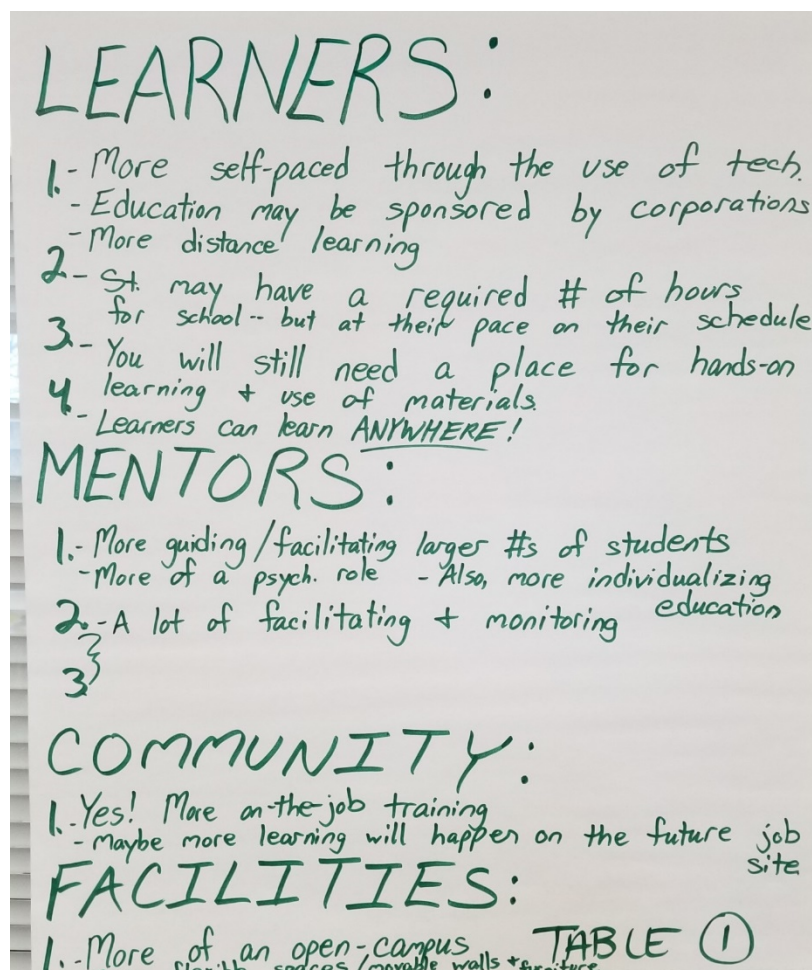 LEARNERS:
1. - More self-paced through the use of tech.
- Education may be sponsored by corporations
- More distance learning
2 - St. may have a required # of hours
for school -- but at their pace on their schedule
3. - You will still need a place for hands-on
4. learning + use of materials.
- Learners can learn ANYWHERE!
MENTORS:
1. - More guiding/facilitating larger #s of students
- More of a psych. role - Also, more individualizing
education
2. - A lot of facilitating + monitoring
3
COMMUNITY:
1. - Yes! More on-the-job training
- Maybe more learning will happen on the future job
site
FACILITIES:
1. - More of an open-campus
TABLE 1
spaces/movable walls + furniture